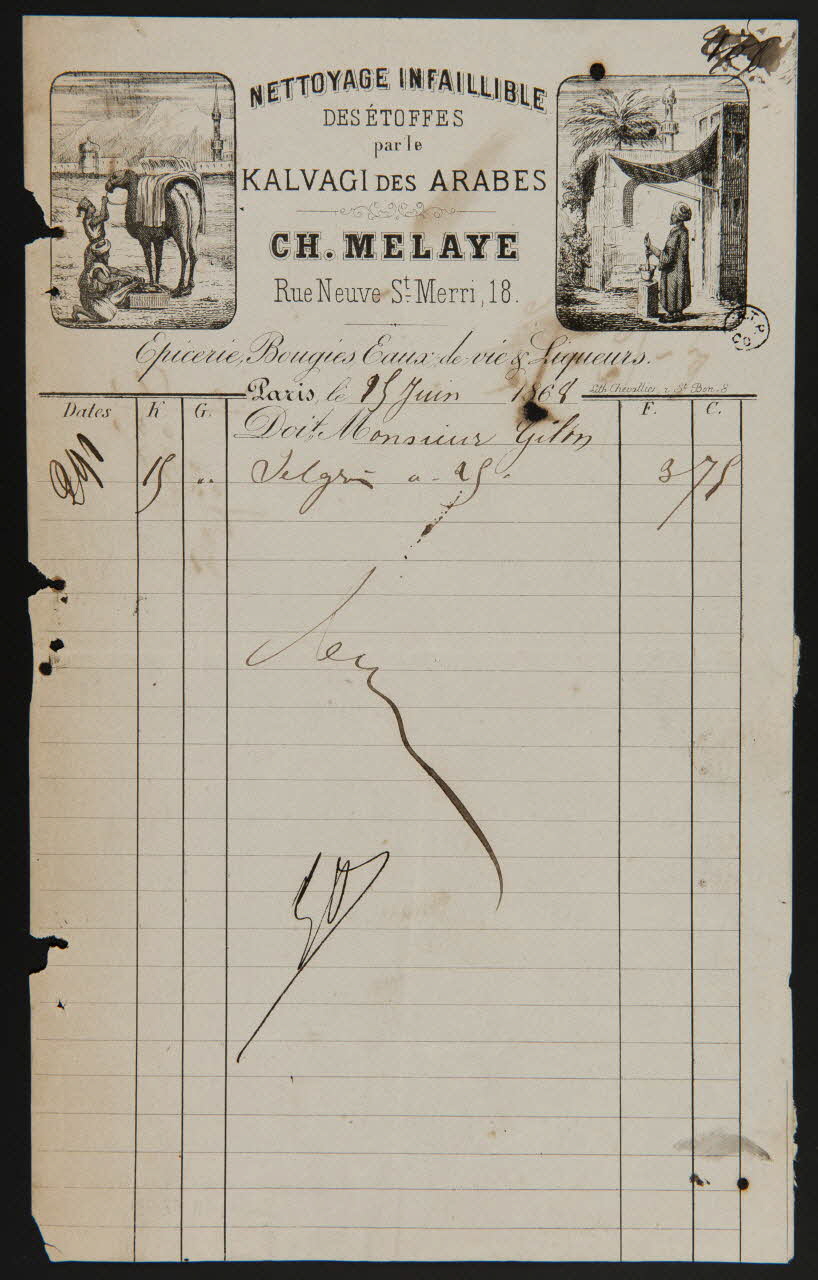 NETTOYAGE INFAILLIBLE
DES ÉTOFFES
par le
KALVAGI DES ARABES
CH. MELAYE
Rue Neuve St. Merri, 18.
Epicerie, Bougies Eaux-de-vie & Liqueurs.
Paris, le 15 Juin 1868
Lith Chevallier, r. St Bon, 8
Dates K G. Doit Monsieur F. C.
15 " a 25 3 75